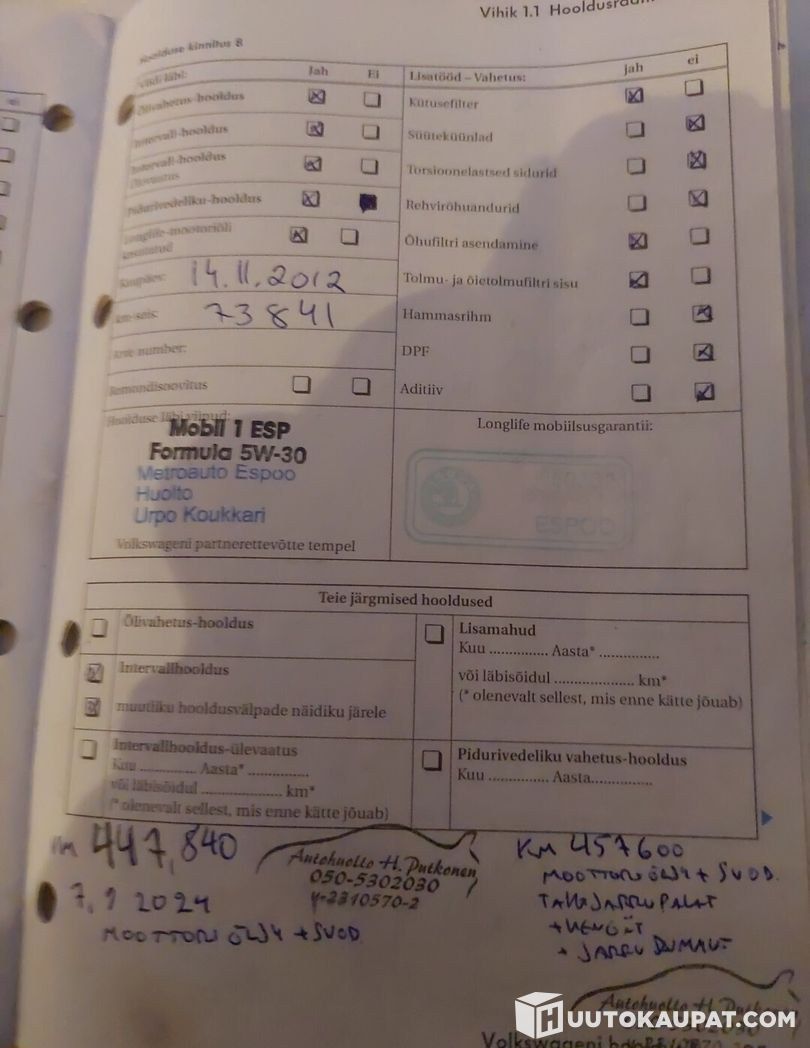 Vihik 1.1 Hooldusraam
Hoolduse kinnitus 8
läbi: Jah Ei
Õlivahetus-hooldus
Intervall-hooldus
Intervall-hooldus
Pidurivedeliku-hooldus
Longlife-mootoriõli
kasutatud
Kuupäev: 14.11.2012
km-seis: 73841
number:
Remondisoovitus
Hoolduse läbi viinud:
Mobil 1 ESP
Formula 5W-30
Metroauto Espoo
Huolto
Urpo Koukkari
Volkswageni partnerettevõtte tempel
Lisatööd – Vahetus: jah ei
Kütusefilter
Süüteküünlad
Torsioonelastsed sidurid
Rehvirõhuandurid
Õhufiltri asendamine
Tolmu- ja õietolmufiltri sisu
Hammasrihm
DPF
Aditiiv
Longlife mobiilsusgarantii:
ESPOO
Teie järgmised hooldused
Õlivahetus-hooldus
Intervallhooldus
muutliku hooldusvälpade näidiku järele
Intervallhooldus-ülevaatus
Kuu .............. Aasta* ...............
või läbisõidul .................... km*
(* olenevalt sellest, mis enne kätte jõuab)
Lisamahud
Kuu .............. Aasta* ..............
või läbisõidul .................... km*
(* olenevalt sellest, mis enne kätte jõuab)
Pidurivedeliku vahetus-hooldus
Kuu .............. Aasta..............
km 447,840
7,9 2024
MOOTTORI ÖLJY + SUOD
Autohuolto H. Putkonen
050-5302030
y-2310570-2
KM 457600
MOOTTORI ÖLJY + SUOD.
TAKAJARRUPALAT
+ JARRU
Autohuolto H. Putkonen
HUUTOKAUPAT.COM
Volkswageni